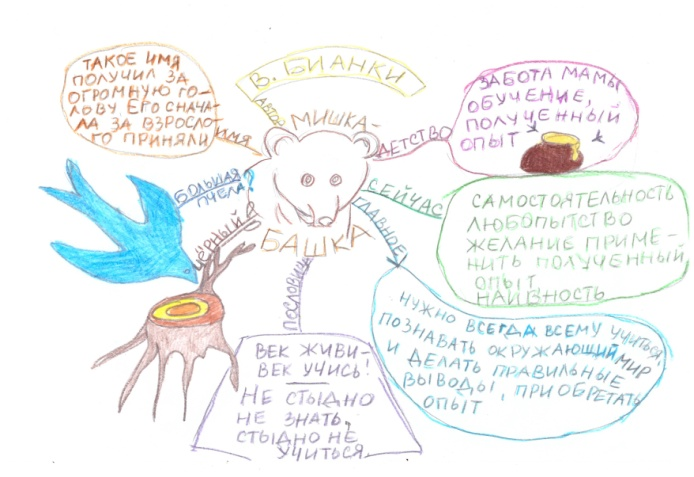 В. БИАНКИ
АВТОР
МИШКА-
БАШКА
ИМЯ
ТАКОЕ ИМЯ
ПОЛУЧИЛ ЗА
ОГРОМНУЮ ГО-
ЛЬВУ ЕГО СНАЧА-
ЛА ЗА ВЗРОСЛО-
ГО ПРИНЯЛИ
ДЕТСТВО
ЗАБОТА МАМЫ
ОБУЧЕНИЕ,
ПОЛУЧЕННЫЙ
ОПЫТ
СЕЙЧАС
САМОСТОЯТЕЛЬНОСТЬ
ЛЮБОПЫТСТВО
ЖЕЛАНИЕ ПРИМЕ-
НИТЬ ПОЛУЧЕННЫЙ
ОПЫТ
НАИВНОСТЬ
ГЛАВНОЕ
НУЖНО ВСЕГДА ВСЕМУ УЧИТЬСЯ,
ПОЗНАВАТЬ ОКРУЖАЮЩИЙ МИР
И ДЕЛАТЬ ПРАВИЛЬНЫЕ
ВЫВОДЫ, ПРИОБРЕТАТЬ
ОПЫТ
ПОСЛОВИЦЫ
ВЕК ЖИВИ-
ВЕК УЧИСЬ!
НЕ СТЫДНО
НЕ ЗНАТЬ,
СТЫДНО НЕ
УЧИТЬСЯ
ЧЁРНЫЙ
БОЛЬШАЯ
ПЧЕЛА?